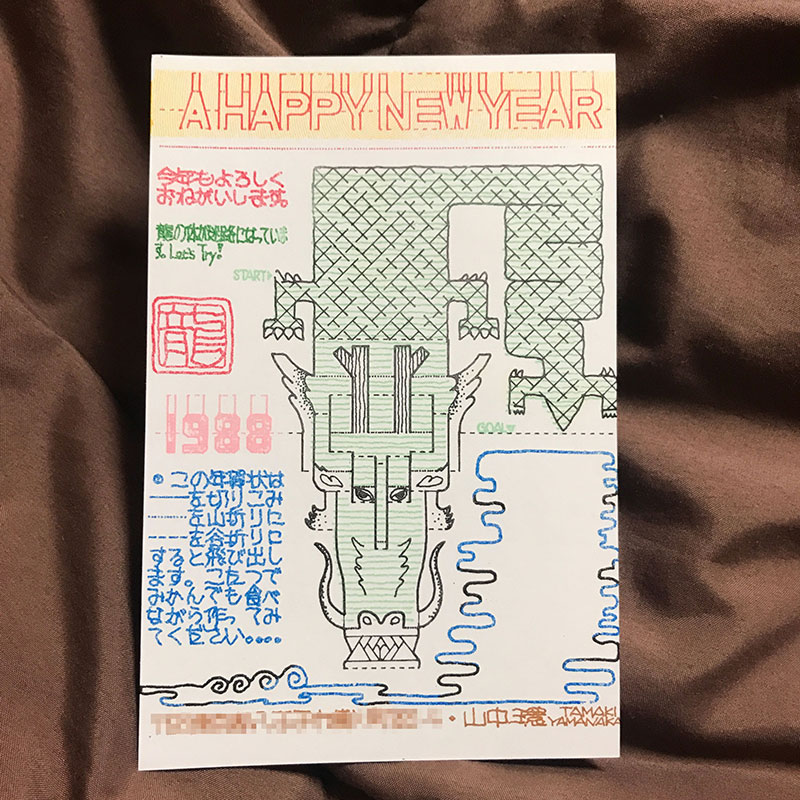 A HAPPY NEW YEAR
今年もよろしく
おねがいします。
龍の体が迷路になっていま
す。Let's Try!
START
龍
1988
GOAL
◎この年賀状は
——を切りこみ
-·-·-を山折りに
----を谷折りに
すると飛び出し
ます。こたつで
みかんでも食べ
ながら作ってみ
てください....
・山中環
TAMAKI
YAMANAKA